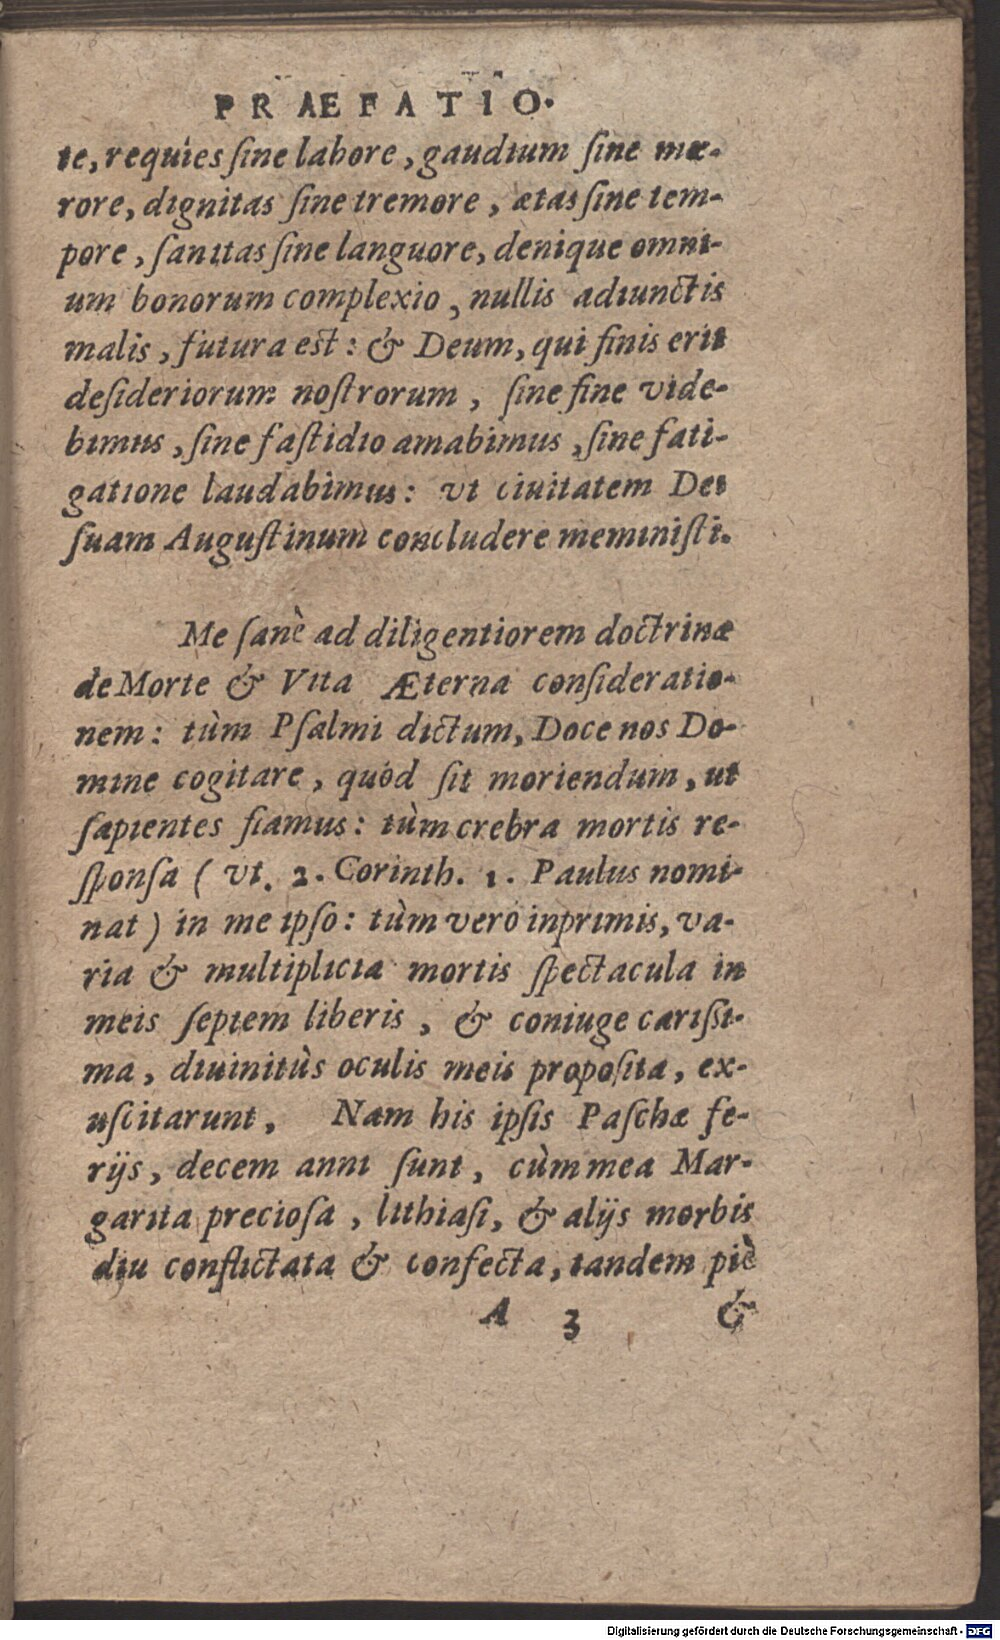 PRÆFATIO.
te, requies ſine labore, gaudium ſine mœ-
rore, dignitas ſine tremore, ætas ſine tem-
pore, ſanitas ſine languore, denique omni-
um bonorum complexio, nullis adiunctis
malis, futura est: & Deum, qui finis erit
deſideriorum noſtrorum, ſine fine vide-
bimus, ſine faſtidio amabimus, ſine fati-
gatione laudabimus: vt ciuitatem Dei
ſuam Auguſtinum concludere meminiſti.
Me ſanè ad diligentiorem doctrinæ
de Morte & Vita Æterna conſideratio-
nem: tùm Pſalmi dictum, Doce nos Do-
mine cogitare, quòd ſit moriendum, ut
ſapientes fiamus: tùm crebra mortis re-
ſponſa ( vt. 2. Corinth. 1. Paulus nomi-
nat ) in me ipſo: tùm verò inprimis, va-
ria & multiplicia mortis ſpectacula in
meis ſeptem liberis, & coniuge cariſſi-
ma, diuinitùs oculis meis propoſita, ex-
uſcitarunt, Nam his ipſis Paſchæ fe-
rijs, decem anni ſunt, cùm mea Mar-
garita precioſa, lithiaſi, & alijs morbis
diu conflictata & confecta, tandem piè
A 3 &
Digitalisierung gefördert durch die Deutsche Forschungsgemeinschaft - DFG